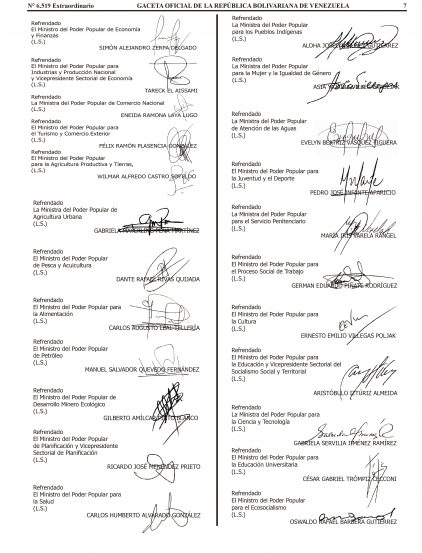 Nº 6.519 Extraordinario
GACETA OFICIAL DE LA REPÚBLICA BOLIVARIANA DE VENEZUELA
7
Refrendado
El Ministro del Poder Popular de Economía
y Finanzas
(L.S.)
SIMÓN ALEJANDRO ZERPA DELGADO
Refrendado
El Ministro del Poder Popular para
Industrias y Producción Nacional
y Vicepresidente Sectorial de Economía
(L.S.)
TARECK EL AISSAMI
Refrendado
La Ministra del Poder Popular de Comercio Nacional
(L.S.)
ENEIDA RAMONA LAYA LUGO
Refrendado
El Ministro del Poder Popular para
el Turismo y Comercio Exterior
(L.S.)
FÉLIX RAMÓN PLASENCIA GONZÁLEZ
Refrendado
El Ministro del Poder Popular
para la Agricultura Productiva y Tierras,
(L.S.)
WILMAR ALFREDO CASTRO SOTELDO
Refrendado
La Ministra del Poder Popular de
Agricultura Urbana
(L.S.)
GABRIELA PEÑA MARTÍNEZ
Refrendado
El Ministro del Poder Popular
de Pesca y Acuicultura
(L.S.)
DANTE RAFAEL RIVAS QUIJADA
Refrendado
El Ministro del Poder Popular para
la Alimentación
(L.S.)
CARLOS AUGUSTO LEAL TELLERÍA
Refrendado
El Ministro del Poder Popular
de Petróleo
(L.S.)
MANUEL SALVADOR QUEVEDO FERNÁNDEZ
Refrendado
El Ministro del Poder Popular de
Desarrollo Minero Ecológico
(L.S.)
GILBERTO AMÍLCAR PINTO BLANCO
Refrendado
El Ministro del Poder Popular
de Planificación y Vicepresidente
Sectorial de Planificación
(L.S.)
RICARDO JOSÉ MENÉNDEZ PRIETO
Refrendado
El Ministro del Poder Popular para
la Salud
(L.S.)
CARLOS HUMBERTO ALVARADO GONZÁLEZ
Refrendado
La Ministra del Poder Popular
para los Pueblos Indígenas
(L.S.)
ALOHA GUTIÉRREZ
Refrendado
La Ministra del Poder Popular
para la Mujer y la Igualdad de Género
(L.S.)
ASIA
Refrendado
La Ministra del Poder Popular
de Atención de las Aguas
(L.S.)
EVELYN BEATRIZ VÁSQUEZ FIGUERA
Refrendado
El Ministro del Poder Popular para
la Juventud y el Deporte
(L.S.)
PEDRO JOSÉ INFANTE APARICIO
Refrendado
La Ministra del Poder Popular para
el Servicio Penitenciario
(L.S.)
MARÍA IRIS VARELA RANGEL
Refrendado
El Ministro del Poder Popular para
el Proceso Social de Trabajo
(L.S.)
GERMAN EDUARDO PIÑATE RODRÍGUEZ
Refrendado
El Ministro del Poder Popular para
la Cultura
(L.S.)
ERNESTO EMILIO VILLEGAS POLJAK
Refrendado
El Ministro del Poder Popular para
la Educación y Vicepresidente Sectorial del
Socialismo Social y Territorial
(L.S.)
ARISTÓBULO IZTÚRIZ ALMEIDA
Refrendado
La Ministra del Poder Popular para
la Ciencia y Tecnología
(L.S.)
GABRIELA SERVILIA JIMÉNEZ RAMÍREZ
Refrendado
El Ministro del Poder Popular para
la Educación Universitaria
(L.S.)
CÉSAR GABRIEL TRÓMPIZ CECCONI
Refrendado
El Ministro del Poder Popular
para el Ecosocialismo
(L.S.)
OSWALDO RAFAEL BARBERA GUTIÉRREZ